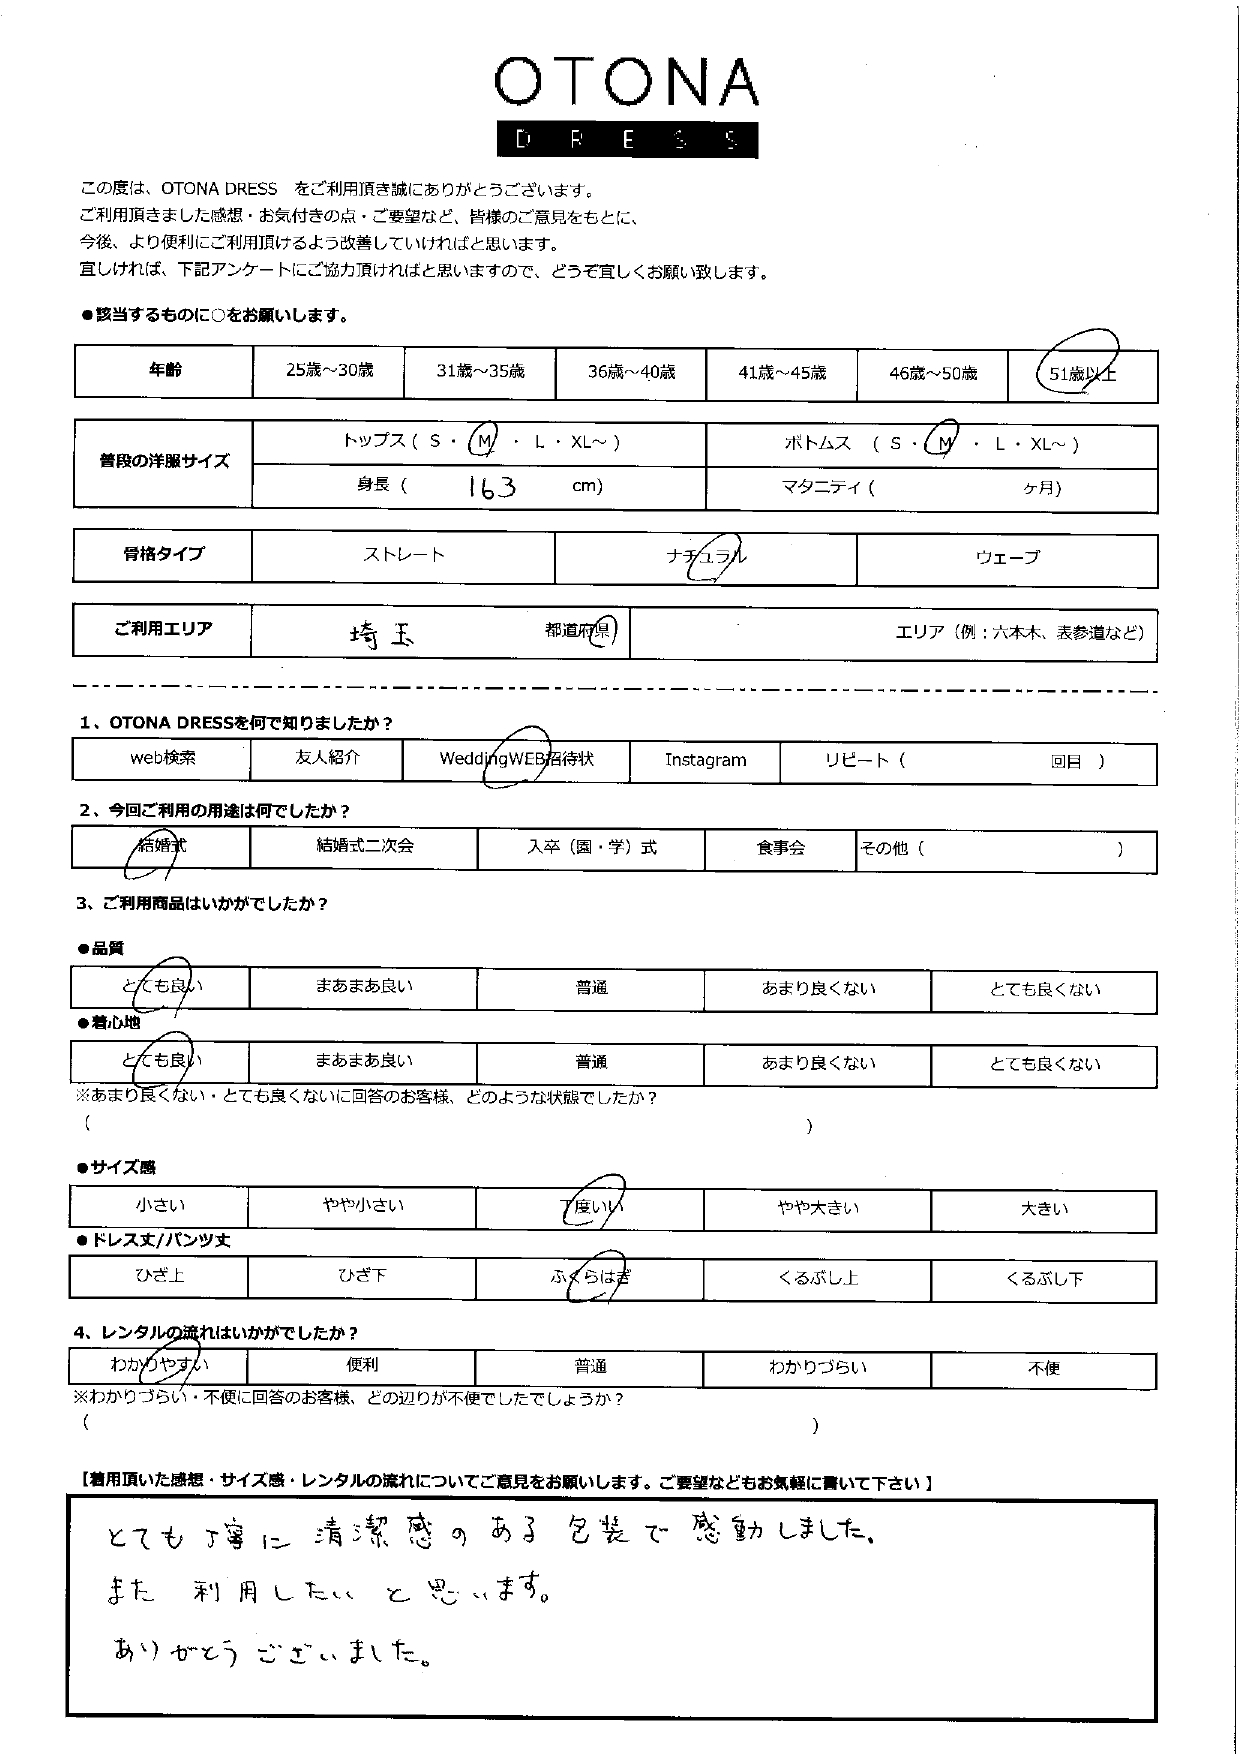 OTONA
DRESS
この度は、OTONA DRESS　をご利用頂き誠にありがとうございます。
ご利用頂きました感想・お気付きの点・ご要望など、皆様のご意見をもとに、
今後、より便利にご利用頂けるよう改善していければと思います。
宜しければ、下記アンケートにご協力頂ければと思いますので、どうぞ宜しくお願い致します。
●該当するものに○をお願いします。
年齢 25歳～30歳 31歳～35歳 36歳～40歳 41歳～45歳 46歳～50歳 51歳以上
普段の洋服サイズ トップス ( S ・ M ・ L ・ XL～ ) ボトムス ( S ・ M ・ L ・ XL～ )
身長 ( 163 cm) マタニティ ( ヶ月)
骨格タイプ ストレート ナチュラル ウェーブ
ご利用エリア 埼玉 都道府県 エリア（例：六本木、表参道など）
1、OTONA DRESSを何で知りましたか？
web検索 友人紹介 WeddingWEB招待状 Instagram リピート ( 回目 )
2、今回ご利用の用途は何でしたか？
結婚式 結婚式二次会 入卒（園・学）式 食事会 その他 ( )
3、ご利用商品はいかがでしたか？
●品質
とても良い まあまあ良い 普通 あまり良くない とても良くない
●着心地
とても良い まあまあ良い 普通 あまり良くない とても良くない
※あまり良くない・とても良くないに回答のお客様、どのような状態でしたか？
( )
●サイズ感
小さい やや小さい 丁度いい やや大きい 大きい
●ドレス丈/パンツ丈
ひざ上 ひざ下 ふくらはぎ くるぶし上 くるぶし下
4、レンタルの流れはいかがでしたか？
わかりやすい 便利 普通 わかりづらい 不便
※わかりづらい・不便に回答のお客様、どの辺りが不便でしたでしょうか？
( )
【着用頂いた感想・サイズ感・レンタルの流れについてご意見をお願いします。ご要望などもお気軽に書いて下さい】
とても丁寧に清潔感のある包装で感動しました。
また利用したいと思います。
ありがとうございました。